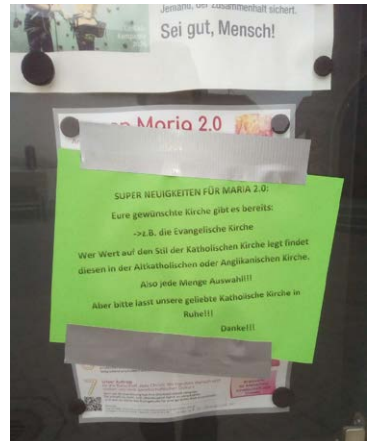 Jemand, der Zusammenhalt sichert.
Sei gut, Mensch!
Maria 2.0
SUPER NEUIGKEITEN FÜR MARIA 2.0:
Eure gewünschte Kirche gibt es bereits:
->z.B. die Evangelische Kirche
Wer Wert auf den Stil der Katholischen Kirche legt findet
diesen in der Altkatholischen oder Anglikanischen Kirche.
Also jede Menge Auswahl!!!
Aber bitte lasst unsere geliebte Katholische Kirche in
Ruhe!!!
Danke!!!
7